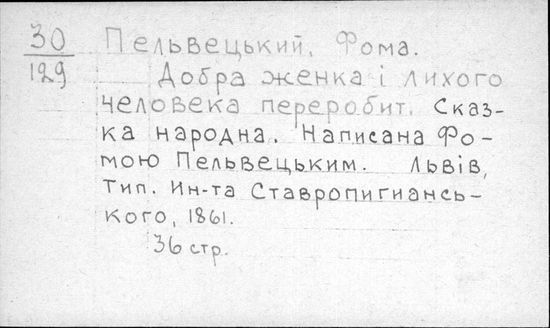 30 Пельвецький, Фома.
129 Добра женка і лихого
человека переробит. Сказ-
ка народна. Написана Фо-
мою Пельвецьким. Львів,
тип. Ин-та Ставропигиансь-
кого, 1861.
36 стр.